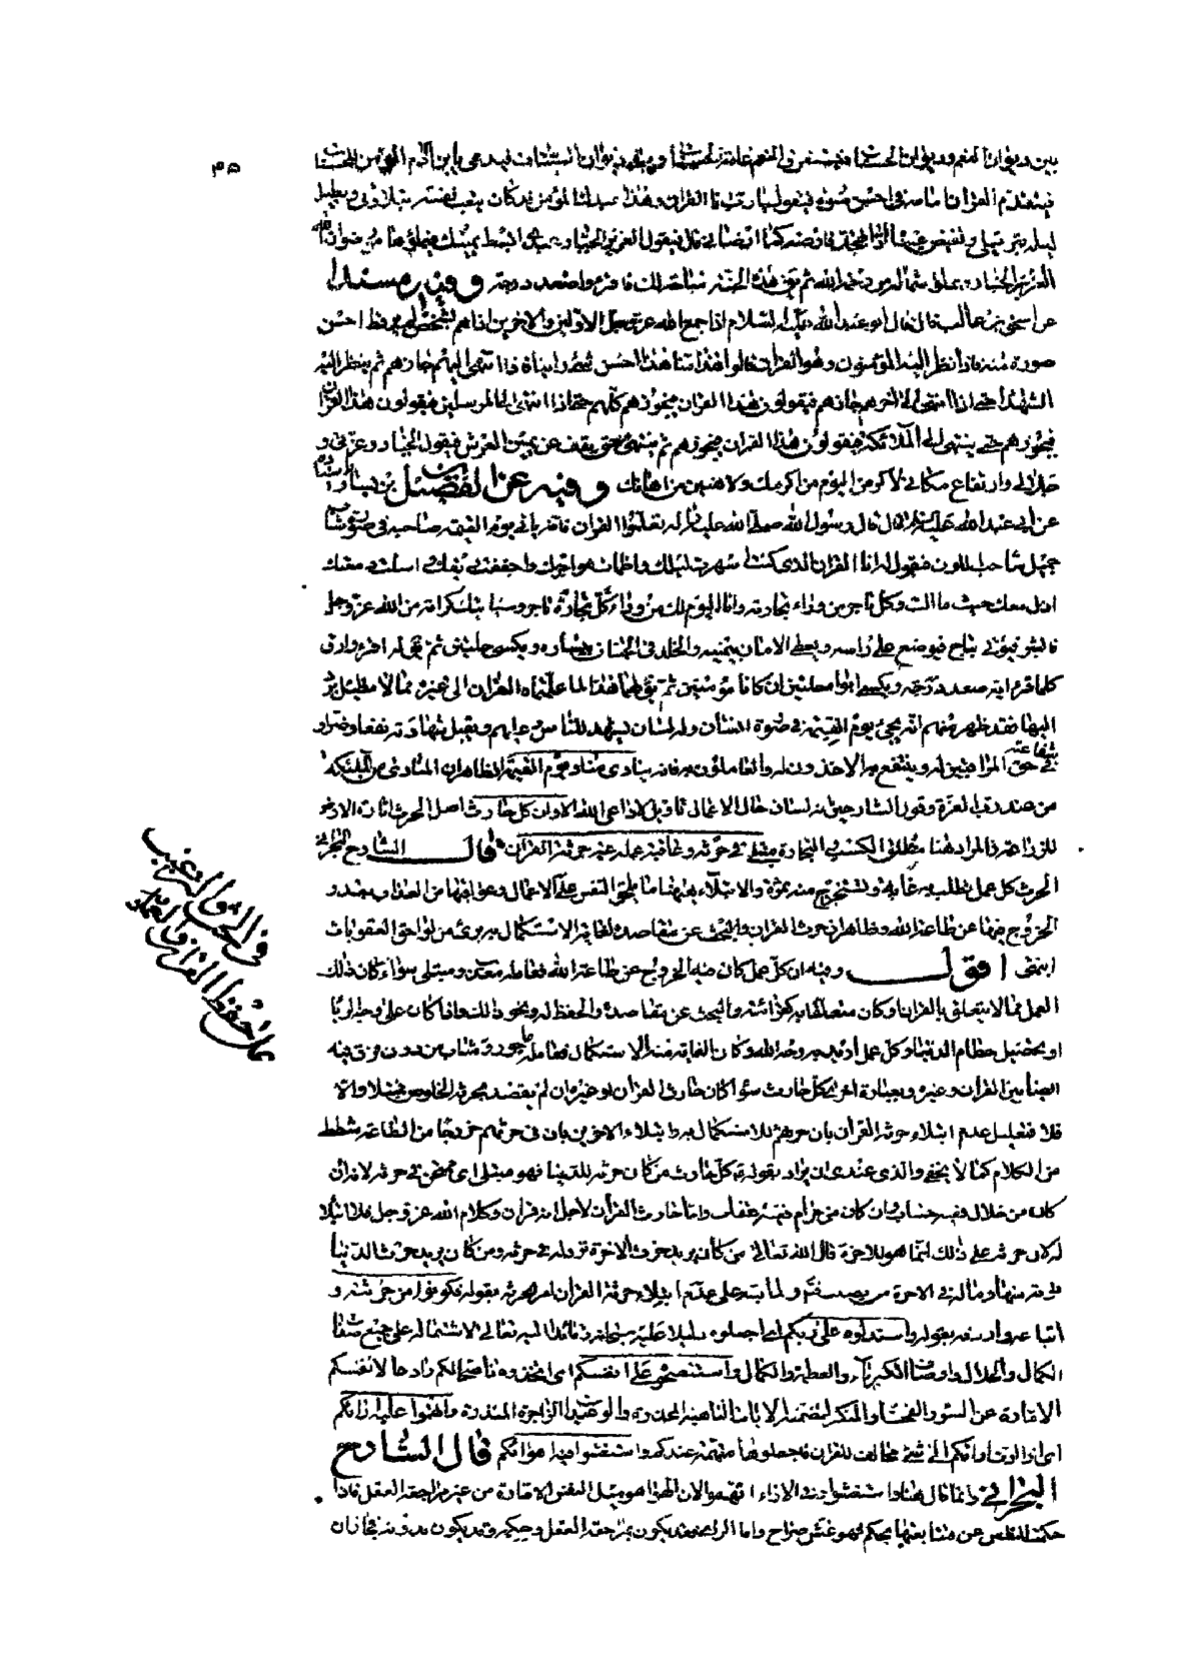 ۳۵
بين ديوان النعم وديوان الحسنات فيستغرق النعم عامة الحسنات ويبقى ديوان السيئات فيدعى بابن آدم المؤمن للحساب
فيتقدم القرآن امامه في احسن صورة فيقول يا رب انا القرآن وهذا عبدك المؤمن قد كان يتعب نفسه بتلاوتي ويطيل
ليله بترتيلي وتفيض عيناه اذا تهجد فارضه كما ارضاني قال فيقول العزيز الجبار عبدي ابسط يمينك فيملؤها من رضوان الله
العزيز الجبار ويملأ شماله من رحمة الله ثم يقال هذه الجنة مباحة لك فاقرء واصعد درجة وفيه مسندا
عن اسحق بن غالب قال قال ابو عبد الله عليه السلام اذا جمع الله عز وجل الاولين والآخرين اذا هم بشخص لم ير قط احسن
صورة منه فاذا نظر اليه المؤمنون وهو القرآن قالوا هذا منا هذا احسن شيء رأينا فاذا انتهى اليهم جازهم ثم ينظر اليه
الشهداء حتى اذا انتهى الى آخرهم جازهم فيقولون هذا القرآن فيجوزهم كلهم حتى اذا انتهى الى المرسلين فيقولون هذا القرآن
فيجوزهم حتى ينتهى الى الملائكة فيقولون هذا القرآن فيجوزهم ثم ينتهى حتى يقف عن يمين العرش فيقول الجبار وعزتي و
جلالي وارتفاع مكاني لاكرمن اليوم من اكرمك ولاهينن من اهانك وفيه عن الفضيل بن يسار باسناده
عن ابي عبد الله عليه السلام قال قال رسول الله صلى الله عليه وآله تعلموا القرآن فانه ياتي يوم القيمة صاحبه في صورة شاب
جميل شاحب اللون فيقول له انا القرآن الذي كنت اسهرت ليلك واظمات هواجرك واجففت ريقك واسلت دمعتك
اؤل معك حيث ما الت وكل تاجر من وراء تجارته وانا اليوم لك من وراء تجارة كل تاجر وسياتيك كرامة من الله عز وجل
فابشر فيؤتى بتاج فيوضع على راسه ويعطى الامان بيمينه والخلد في الجنان بيساره ويكسى حلتين ثم يقال له اقرء وارق
كلما قرء اية صعد درجة ويكسى ابواه حلتين ان كانا مؤمنين ثم يقال لهما هذا لما علمتماه القرآن الى غير
فقد ظهر منهم انه يجيء يوم القيمة في صورة انسان وله لسان يشهد للناس وعليهم ويقبل شهادته نفعا وضرا و
شفاعته في حق المراجعين له وينتفع به الآخذون له والعاملون به فانه ينادي مناد يوم القيمة الظاهر ان المنادي من الملئكة
من عند رب العزة وقول الشارح اعمى الله الا وان كل حارث اصل الحرث اثارة الارض
للزراعة والمراد هنا مطلق الكسب والتجارة مبتلى في حرثه وعاقبة عمله غير حرثة القرآن قال الشارح البحراني
الحرث كل عمل يطلب به غاية وتستخرج منه ثمرة والابتلاء ههنا ما يلحق النفس على الاعمال وعواقبها من العذاب بقدر
الخروج فيها عن طاعة الله وظاهر ان حرث القرآن والبحث عن مقاصده لغاية الاستكمال به برئ من لواحق العقوبات
انتهى اقول وفيه ان كل عمل كان فيه الخروج عن طاعة الله فعامله معذب ومبتلى سواء كان ذلك
العمل مما لا يتعلق بالقرآن او كان متعلقا به كقرائته والبحث عن مقاصده والحفظ له ونحو ذلك اذا كان على وجه الريا
او تحصيل حطام الدنيا وكل عمل اريد به وجه الله وكان الغاية منه الاستكمال فعامله ماجور ومثاب من دون فرق فيه
ايضا بين القرآن وغيره وبعبارة اخرى كل حارث سواء كان حارث القرآن او غيره ان لم يقصد بحرثه الخلوص فمبتلى والا
فلا فتعليل عدم ابتلاء حرثة القرآن بان حرثهم للاستكمال به وابتلاء الاخرين بان في حرثهم خروجا من الطاعة شطط
من الكلام كما لا يخفى والذي عندي ان يراد بقوله كل حارث من كان حرثه للدنيا فهو مبتلى اي ممتحن في حرثه لانه ان
كان من حلال ففيه حساب وان كان من حرام ففيه عقاب واما حارث القرآن لاجل انه قرآن وكلام الله عز وجل فلا ابتلاء
له لان حرثه على ذلك انما هو للاخرة قال الله تعالى من كان يريد حرث الاخرة نزد له في حرثه ومن كان يريد حرث الدنيا
نؤته منها وما له في الاخرة من نصيب ولما نبه على عدم ابتلاء حرثة القرآن امر بحرثه بقوله فكونوا من حرثته و
اتباعه واردفه بقوله واستدلوه على ربكم اي اجعلوه دليلا عليه سبحانه وقائدا اليه تعالى لاشتماله على جميع صفات
الكمال والجلال واوصاف الكبرياء والعظمة والكمال واستنصحوه على انفسكم اي اتخذوه ناصحا لكم رادعا لانفسكم
الامارة عن السوء والفحشاء والمنكر لتضمنه الايات الناهية المحذرة والوعيدات الزاجرة المنذرة واتهموا عليه آرائكم
اي اذا ادت آرائكم الى شيء مخالف للقرآن فاجعلوها متهمة عندكم واستغشوا فيه اهوائكم قال الشارح
البحراني وانما قال هنا استغشوا وفي الاراء اتهموا لان الهوى هو ميل النفس الامارة من غير مراجعة العقل فاذا
حكمت النفس عن متابعتها بحكم فهو غش صراح واما الراى فقد يكون بمراجعة العقل وحكمه وقد يكون بدونه فجاز ان
في الحث والترغيب
على حفظ القرآن والعمل به